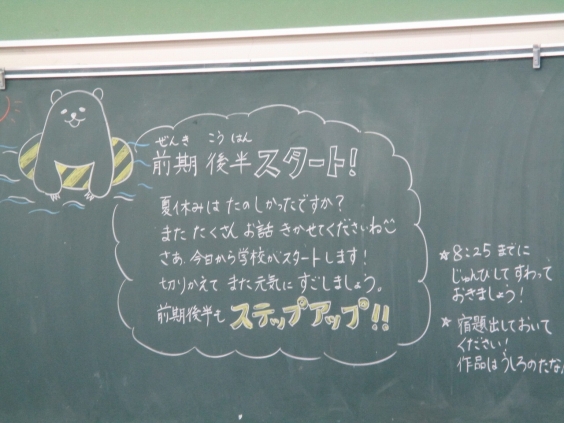 ぜんき こうはん
前期 後半 スタート!
夏休みは たのしかったですか?
また たくさん お話 きかせてくださいね
さあ、今日から学校がスタートします!
切りかえて また 元気に すごしましょう。
前期後半も ステップアップ!!
★ 8:25 までに
じゅんびして すわって
おきましょう!
★ 宿題出しておいて
ください!
作品は うしろのたな